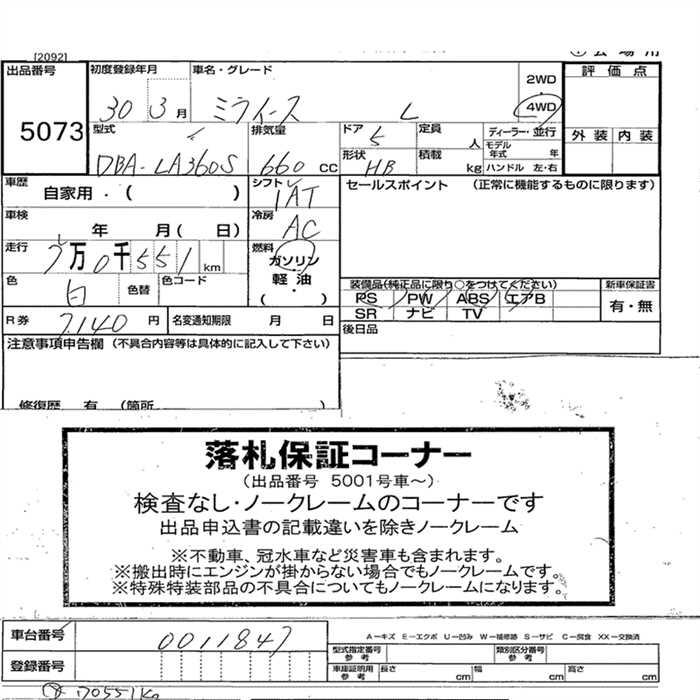 [2092]
出品番号 初度登録年月 車名・グレード 2WD 評価点
5073 30 3月 ミライース L 4WD
型式 排気量 ドア 定員 ディーラー・並行 外装 内装
5 人 モデル年式 年
DBA-LA360S 660cc 形状 HB 積載 kg ハンドル 左・右
車歴 自家用・( ) シフト IAT セールスポイント (正常に機能するものに限ります)
車検 年 月(日) 冷房 AC
走行 7万0千551km 燃料 ガソリン・軽油( )
色 白 色替 色コード 装備品(純正品に限り○をつけてください) 新車保証書
PS PW ABS エアB 有・無
SR ナビ TV
R券 7,140円 名変通知期限 月 日 後日品
注意事項申告欄 (不具合内容等は具体的に記入して下さい)
修復歴 有 (箇所 )
落札保証コーナー
(出品番号 5001号車~)
検査なし・ノークレームのコーナーです
出品申込書の記載違いを除きノークレーム
※不動車、冠水車など災害車も含まれます。
※搬出時にエンジンが掛からない場合でもノークレームです。
※特殊特装部品の不具合についてもノークレームになります。
車台番号 0011847 A-キズ E-エクボ U-凹み W-補修跡 S-サビ C-腐食 XX-交換済
型式指定番号 参考 類別区分番号 参考
登録番号 車庫証明用 参考 長さ cm 幅 cm 高さ cm